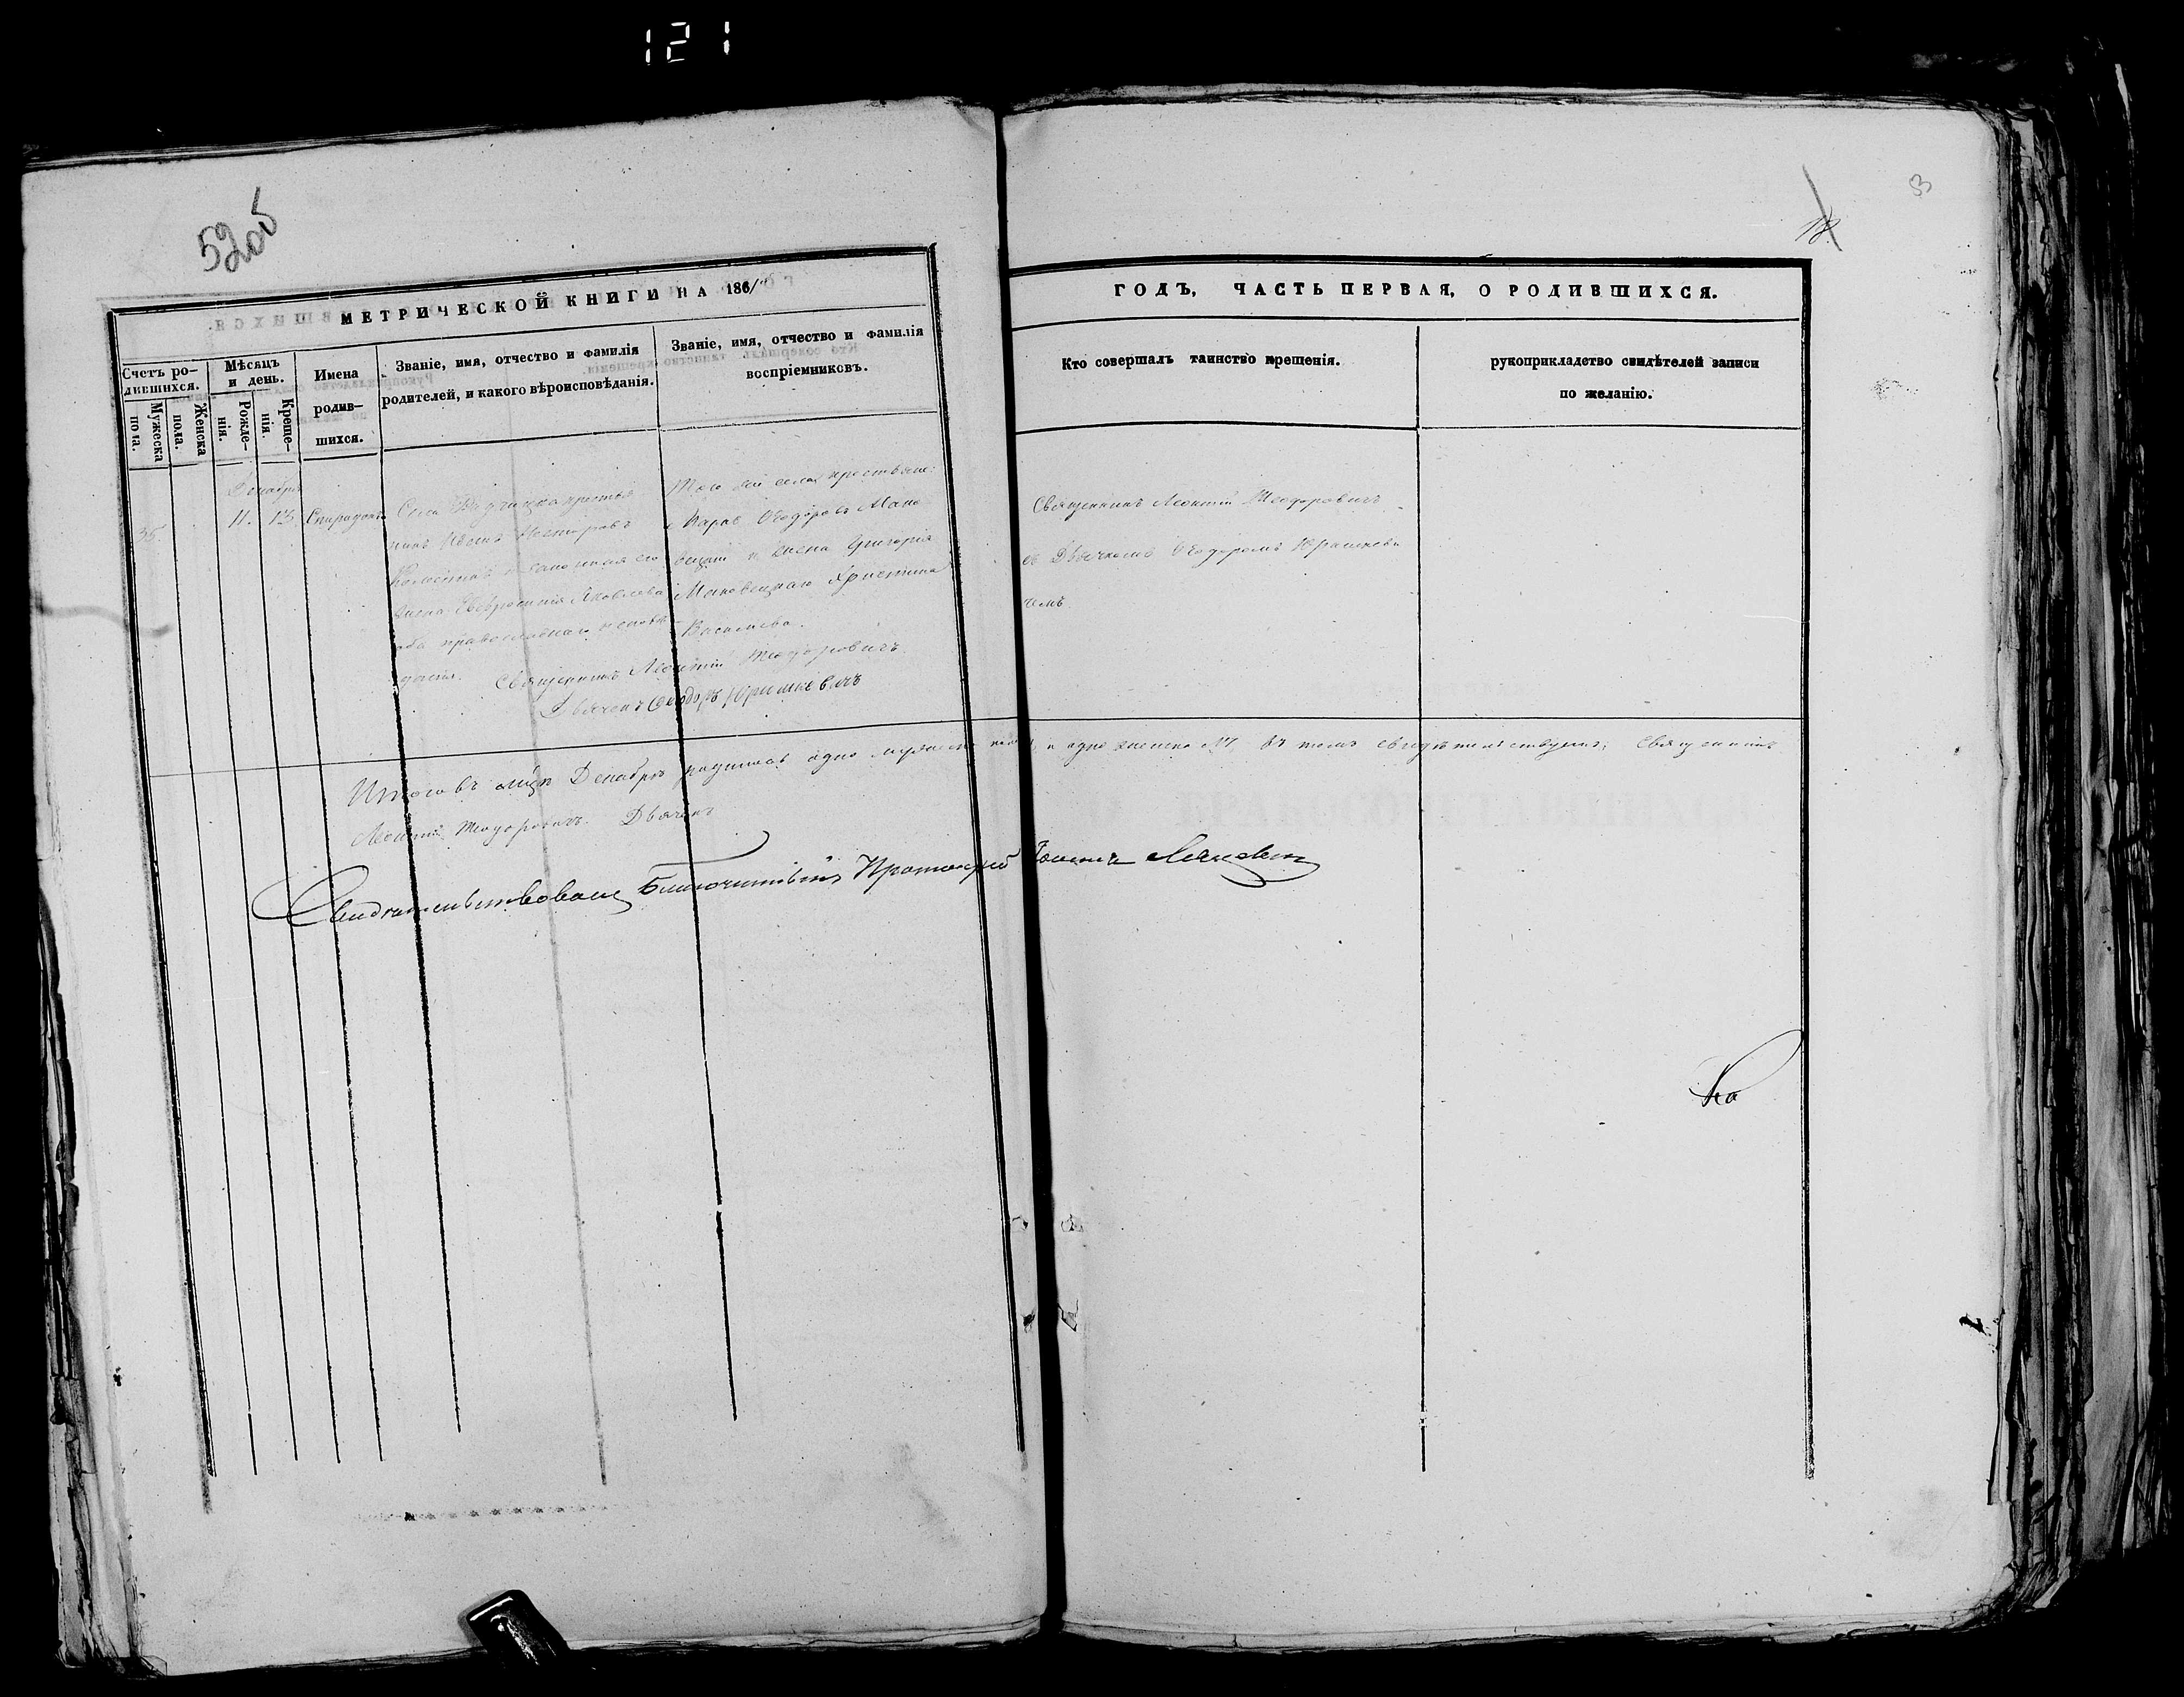 121
52об
53
МЕТРИЧЕСКОЙ КНИГИ НА 186
ГОДЪ, ЧАСТЬ ПЕРВАЯ, О РОДИВШИХСЯ.
Счетъ ро-
дившихся.
Мужеска
пола.
Женска
пола.
Мѣсяцъ
и день.
Рожде-
нія.
Креще-
нія.
Имена
родив-
шихся.
Званіе, имя, отчество и фамилія
родителей, и какого вѣроисповѣданія.
Званіе, имя, отчество и фамилія
воспріемниковъ.
Кто совершалъ таинство крещенія.
рукоприкладство свидѣтелей записи
по желанію.
Декабря
35.
11. 13.
Спиридонъ
Села крестья
нинъ Несторовъ
и законная его
жена Евфросинія Яковлева
оба православнаго исповѣ
данія.
Того же села крестьяне:
Ѳеодоровъ Мако
вецкій и жена Григорія
Маковецкаго Христина
Васильева.
Священникъ Леонтій Теодоровичъ
Дьячекъ Ѳеодоръ Юрашкевичъ
Священникъ Леонтій Теодоровичъ
съ Дьячкомъ Ѳеодоромъ Юрашкеви
чемъ.
Итого въ мцѣ Декабрѣ родилось одно мужеска пола, и одно женска въ томъ свидѣтельствуемъ: Священникъ
Леонтій Теодоровичъ. Дьячекъ
Свидѣтельствовалъ Благочинный Протоіерей Іоаннъ
Ко